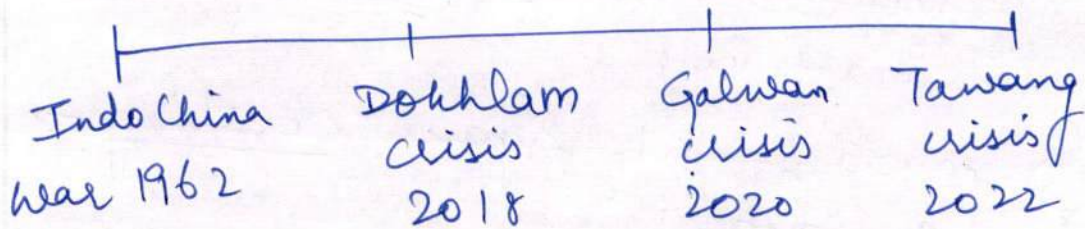 Indo China
war 1962
Dokhlam
crisis
2018
Galwan
crisis
2020
Tawang
crisis
2022